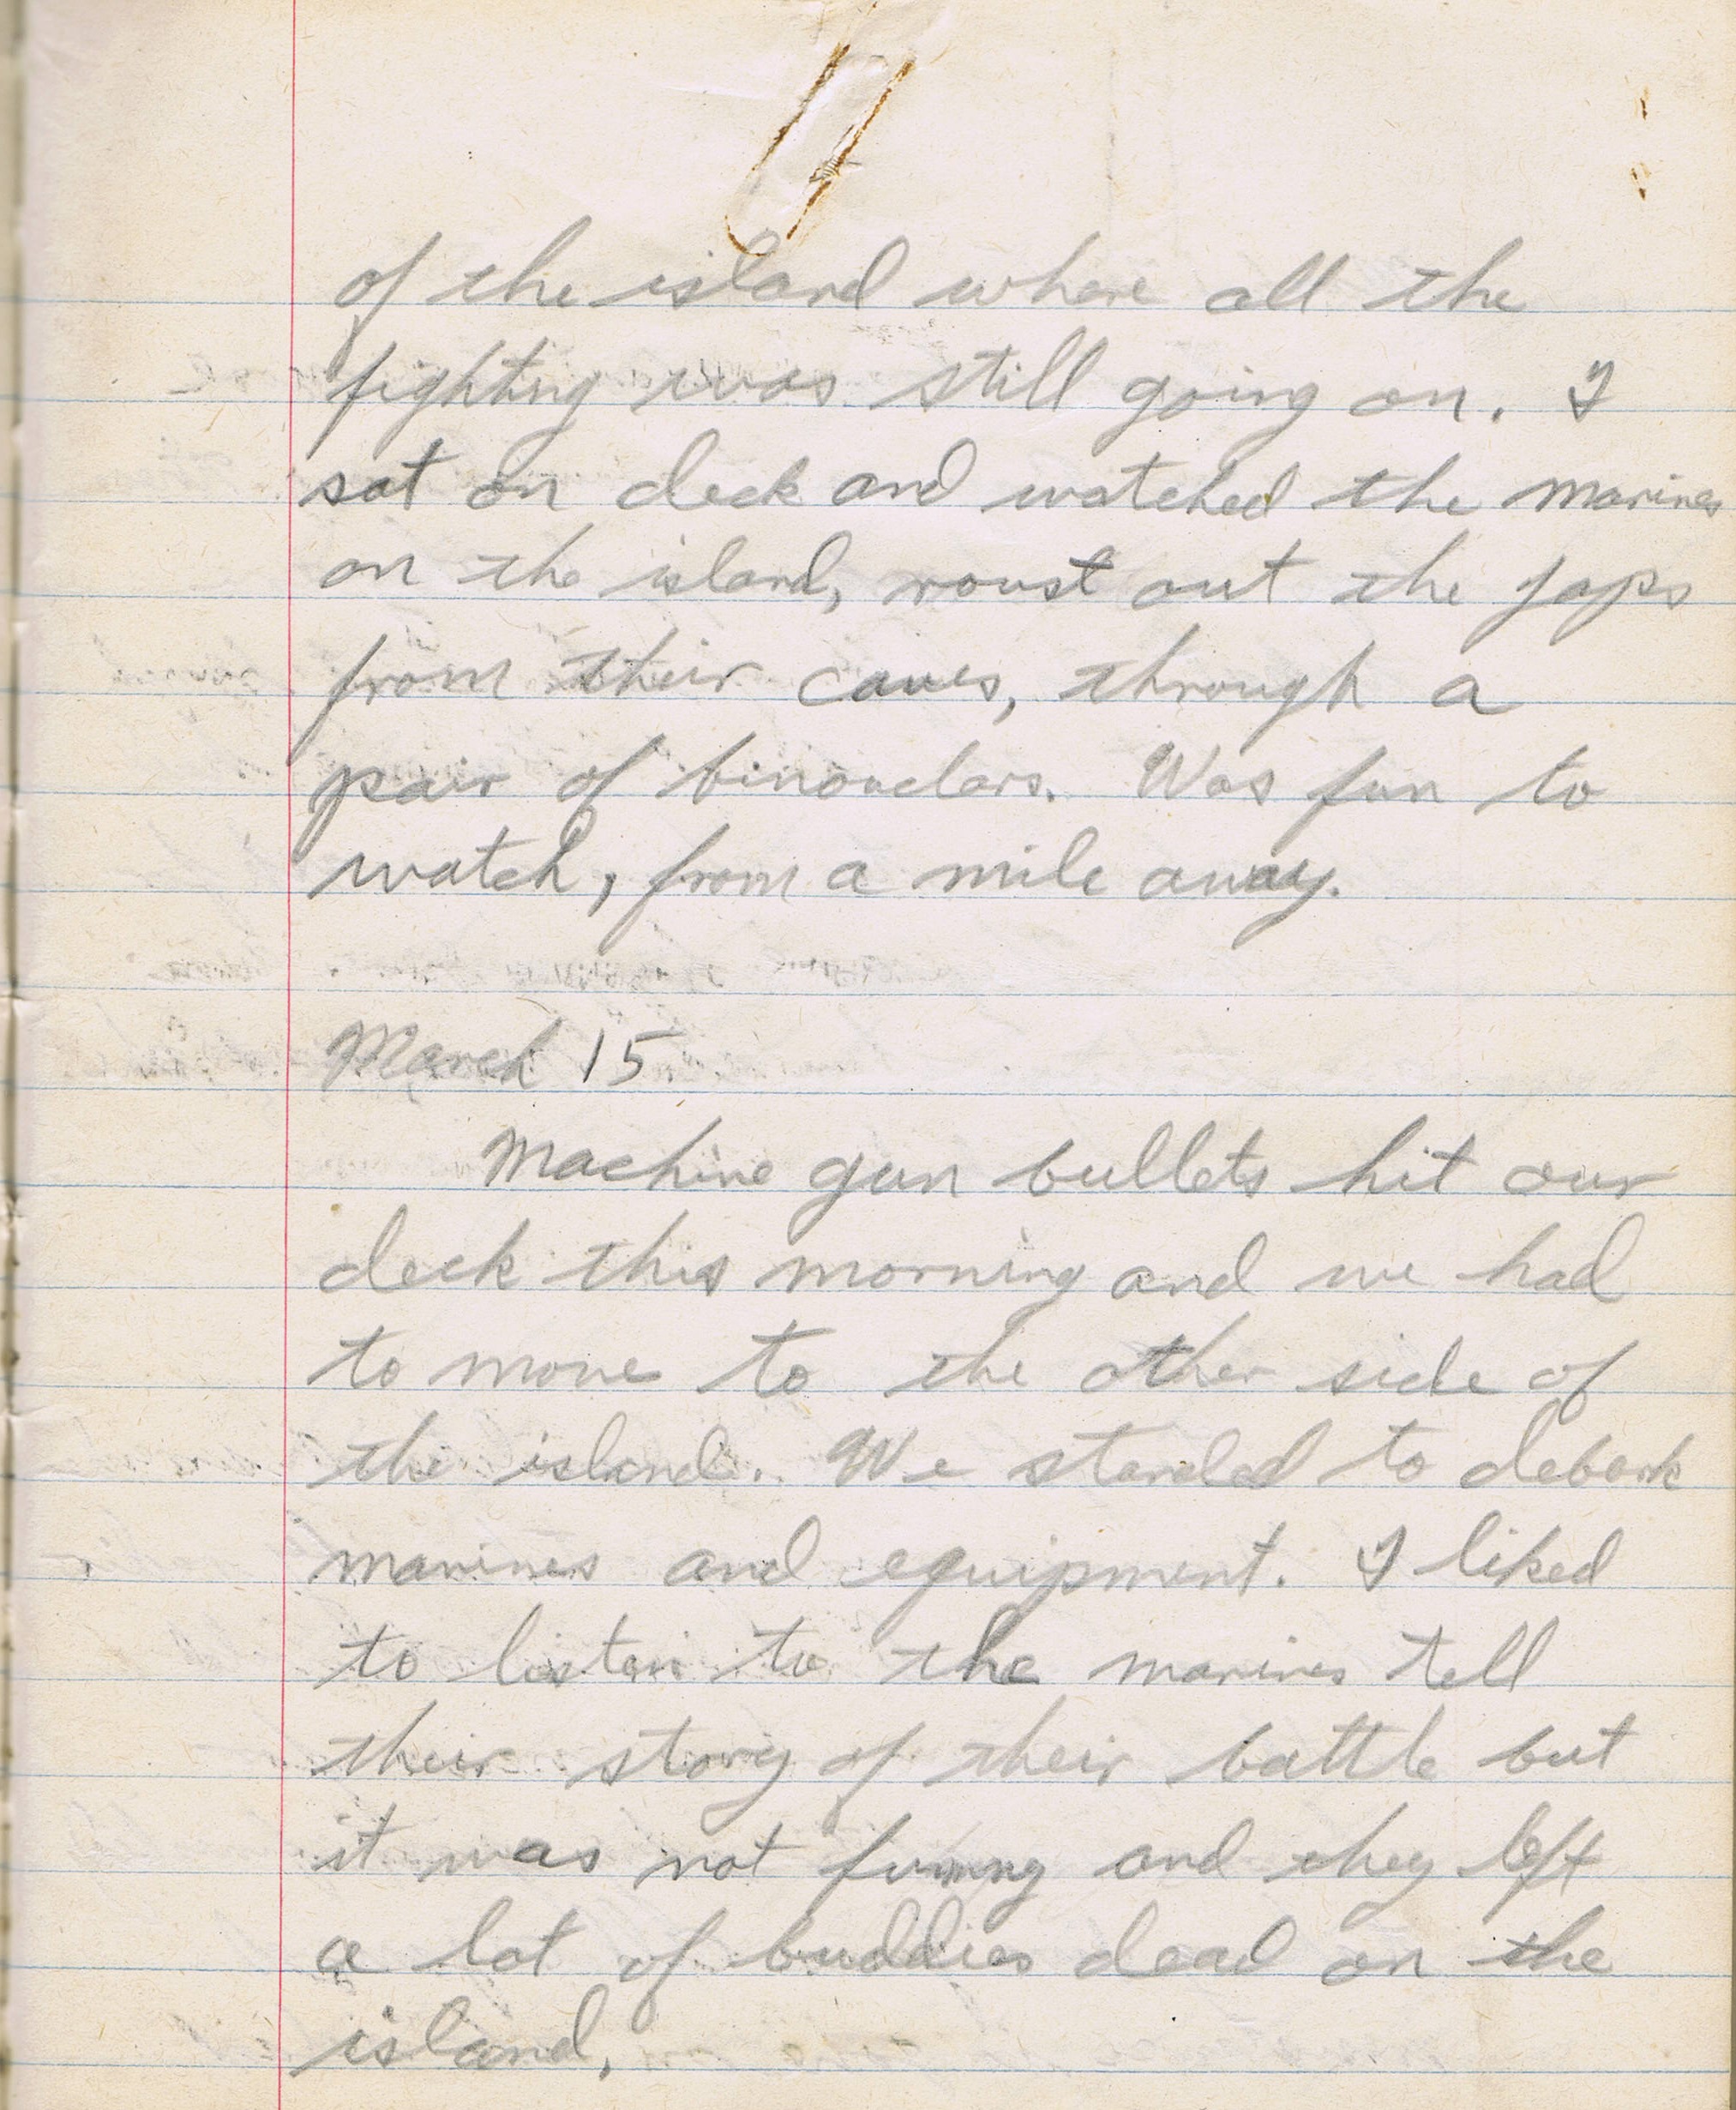 of the island where all the
fighting was still going on. I
sat on deck and watched the marines
on the island, roust out the japs
from their caves, through a
pair of binouclars. Was fun to
watch, from a mile away.
March 15
Machine gun bullets hit our
deck this morning and we had
to move to the other side of
the island. We standed to debark
marines and equipment. I liked
to listen to the marines tell
their story of their battle but
it was not funny and they left
a lot of buddies dead on the
island.